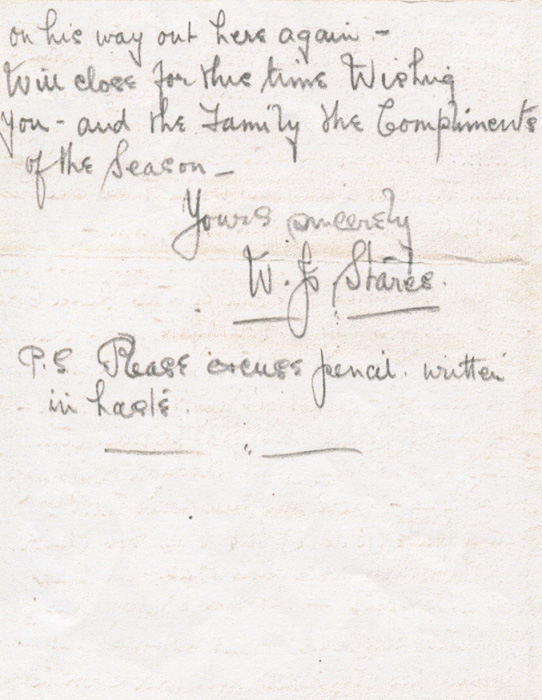 on his way out here again -
Will close for this time Wishing
you - and the Family the Compliments
of the Season -
Yours sincerely
W. Jo Stares.
P.S Please excuse pencil. written
in haste.